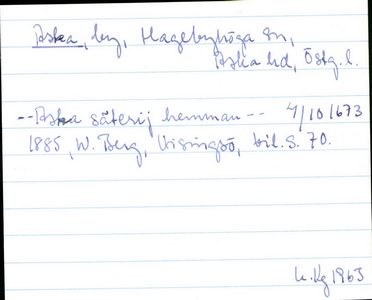 Aska, by, Hagebyhöga sn,
Aska hd, Östg. l.
--Aska säterij hemman-- 4/10 1673
1885, W. Berg, Visingsö, bil. S. 70.
K.Kg 1963